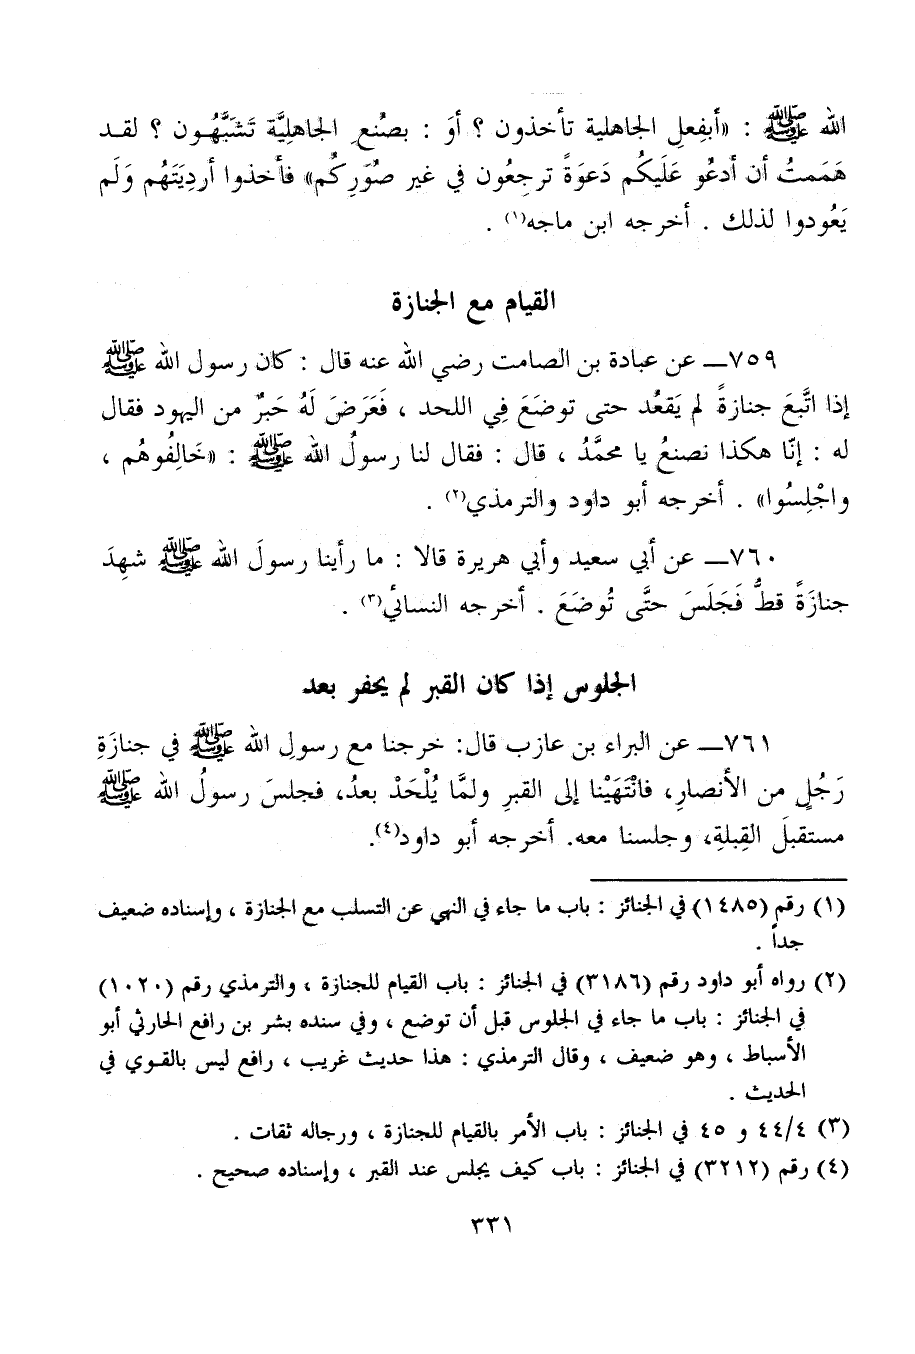 الله ﷺ : «أبفِعلِ الجاهلية تأخذون ؟ أوَ : بصُنعِ الجاهِليَّة تَشَبَّهُون ؟ لقد
هَمَمتُ أن أدعُو عَلَيكُم دَعوَةً ترجِعُون في غير صُوَرِكُم» فأخذوا أردِيَتَهُم وَلَم
يَعُودوا لذلك . أخرجه ابن ماجه(١) .
القيام مع الجنازة
٧٥٩ــ عن عبادة بن الصامت رضي الله عنه قال : كان رسول الله ﷺ
إذا اتَّبعَ جنازةً لم يَقعُد حتى توضَعَ فِي اللحد ، فَعَرَضَ لَهُ حَبرٌ من اليهود فقال
له : إنّا هكذا نصنعُ يا محمَّدُ ، قال : فقال لنا رسولُ الله ﷺ : «خَالِفُوهُم ،
واجْلِسُوا» . أخرجه أبو داود والترمذي(٢) .
٧٦٠ــ عن أبي سعيد وأبي هريرة قالا : ما رأينا رسولَ الله ﷺ شهِدَ
جنازَةً قطُّ فَجَلَسَ حتَّى تُوضَعَ . أخرجه النسائي(٣) .
الجلوس إذا كان القبر لم يحفر بعد
٧٦١ــ عن البراء بن عازب قال: خرجنا مع رسولِ الله ﷺ في جنازَةِ
رَجُلٍ من الأنصارِ، فانْتَهَيْنا إلى القبرِ ولمَّا يُلْحَدْ بعدُ، فجلسَ رسولُ الله ﷺ
مستقبلَ القِبلةِ، وجلسنا معه. أخرجه أبو داود(٤).
(١) رقم (١٤٨٥) في الجنائز : باب ما جاء في النهي عن التسلب مع الجنازة ، وإسناده ضعيف
جداً .
(٢) رواه أبو داود رقم (٣١٨٦) في الجنائز : باب القيام للجنازة ، والترمذي رقم (١٠٢٠)
في الجنائز : باب ما جاء في الجلوس قبل أن توضع ، وفي سنده بشر بن رافع الحارثي أبو
الأسباط ، وهو ضعيف ، وقال الترمذي : هذا حديث غريب ، رافع ليس بالقوي في
الحديث .
(٣) ٤/٤٤ و ٤٥ في الجنائز : باب الأمر بالقيام للجنازة ، ورجاله ثقات .
(٤) رقم (٣٢١٢) في الجنائز : باب كيف يجلس عند القبر ، وإسناده صحيح .
٣٣١